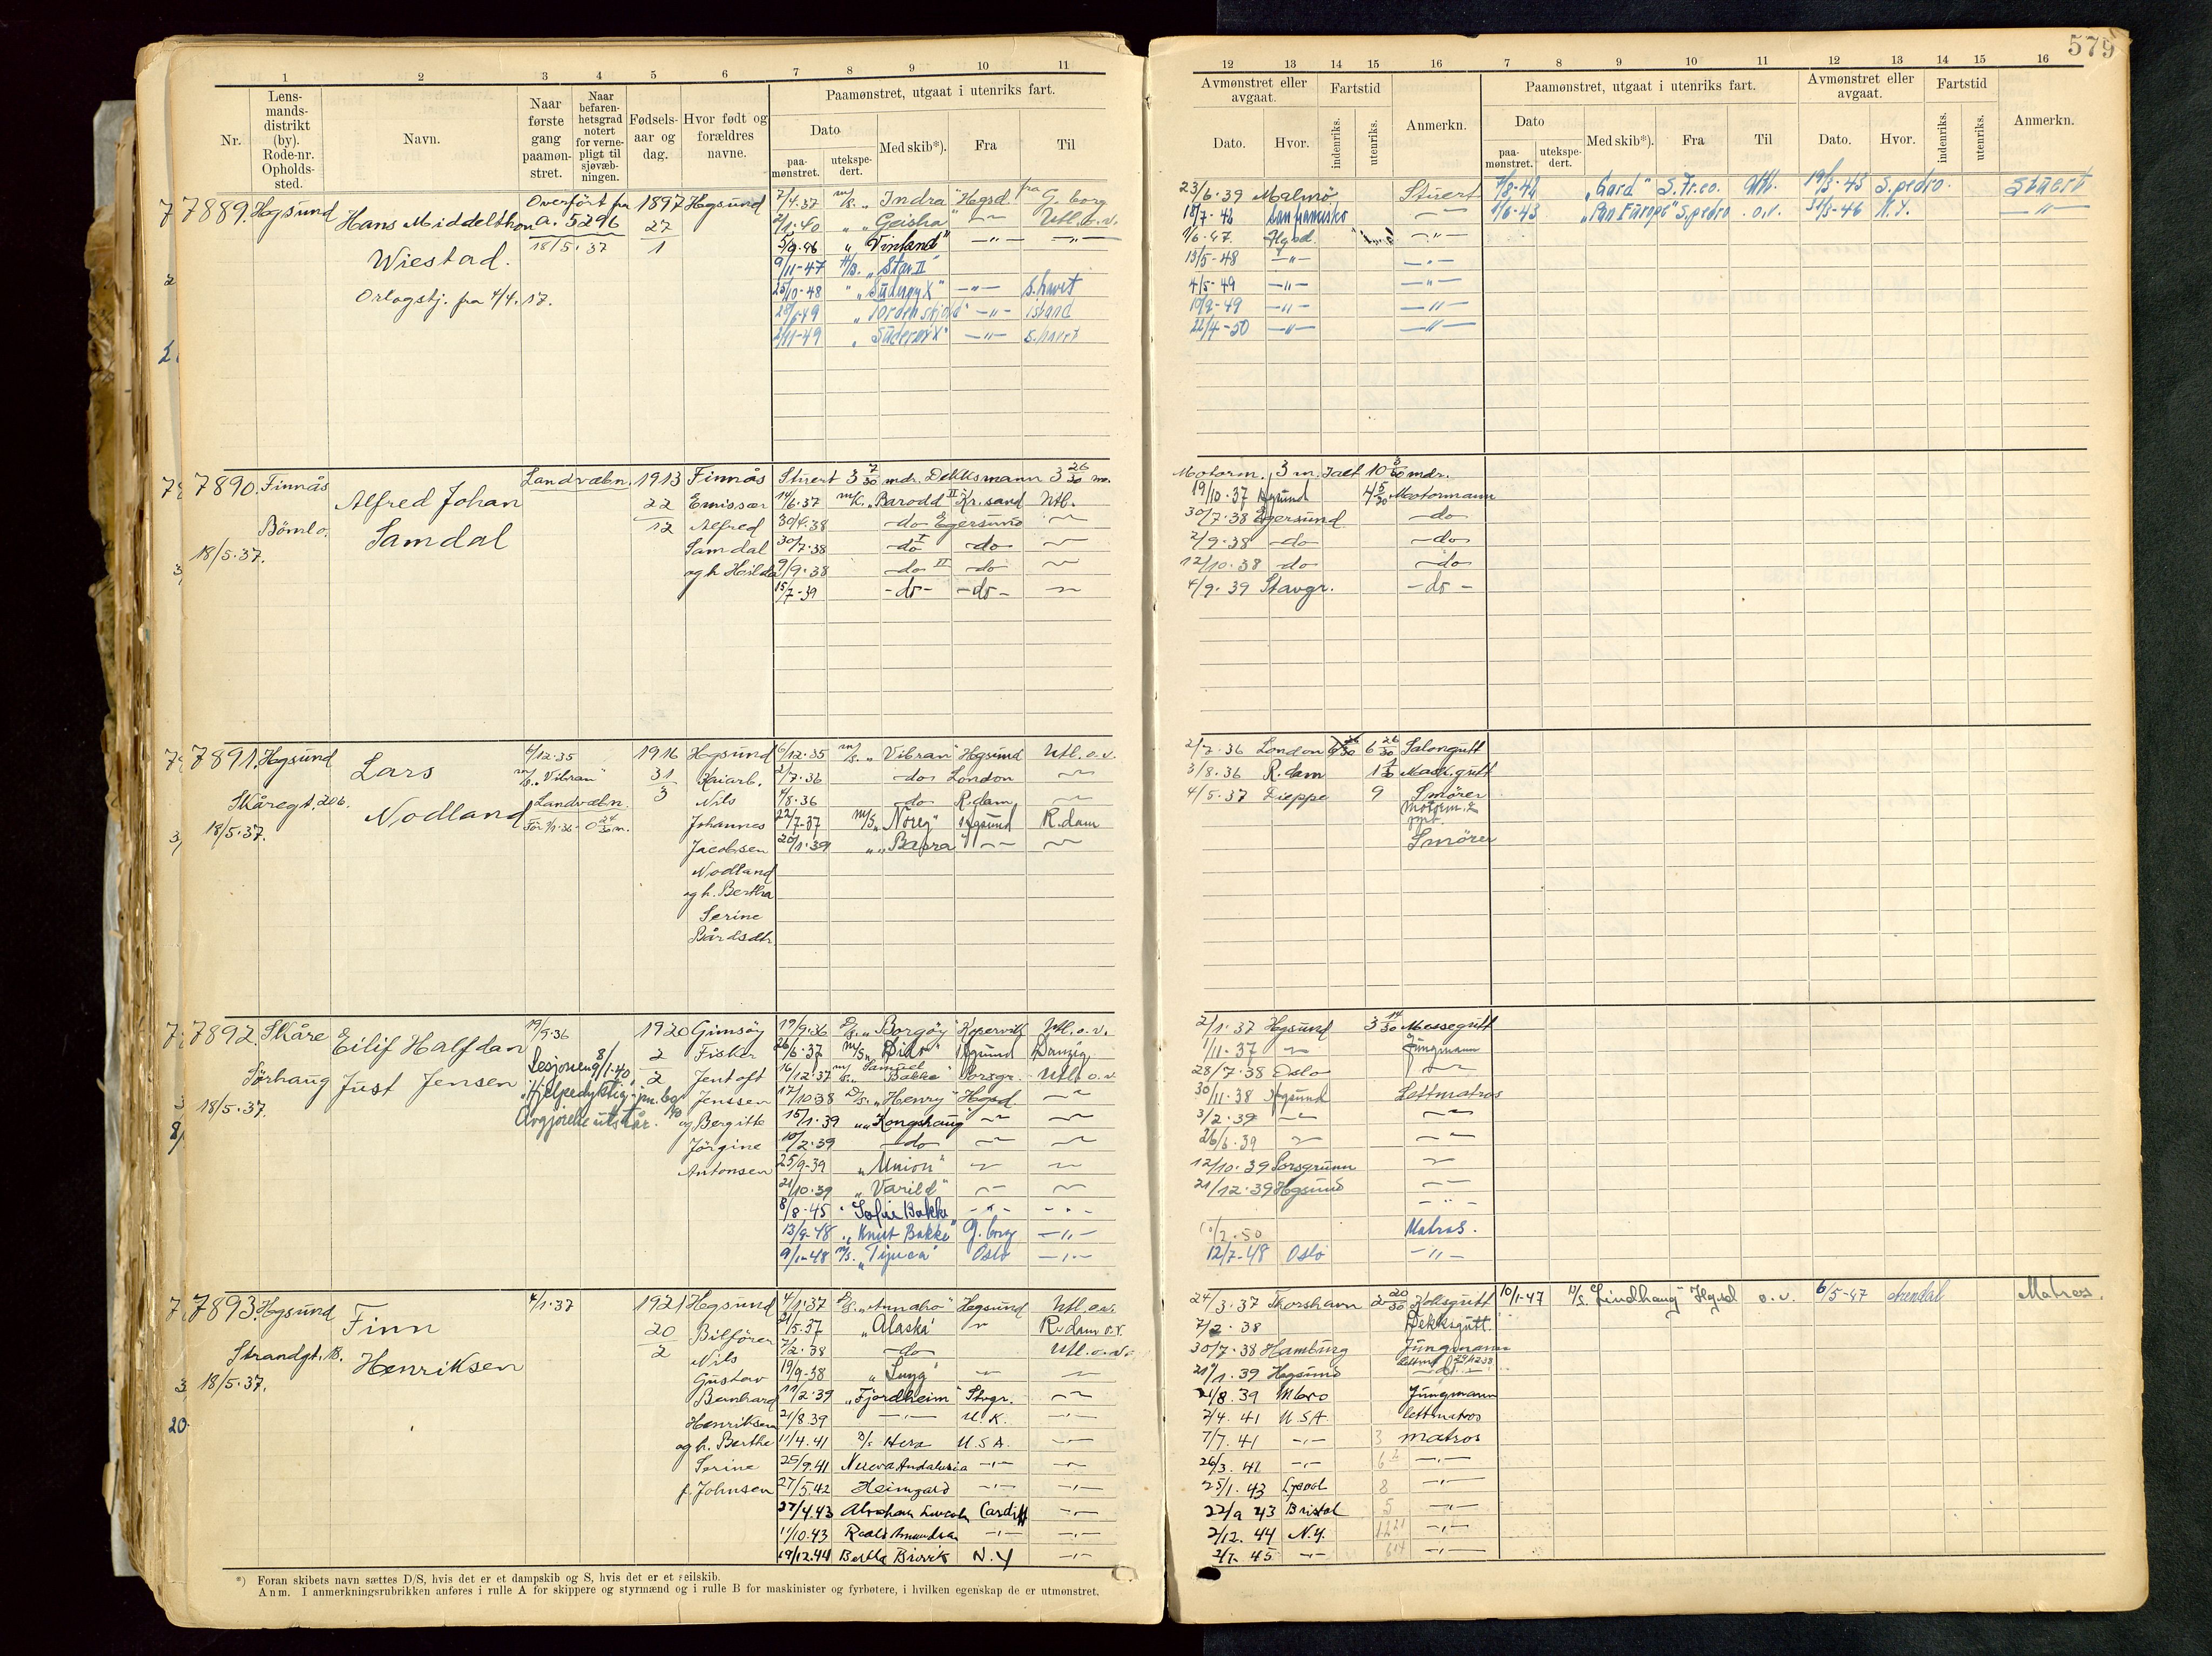 579
1 2 3 4 5 6 7 8 9 10 11
Nr. Lensmandsdistrikt (by). Rode-nr. Opholdssted. Navn. Naar første gang paamønstret. Naar befarenhetsgrad notert for vernepligt til sjøvæbningen. Fødselsaar og dag. Hvor født og forældres navne. Paamønstret, utgaat i utenriks fart. Dato paamønstret. utekspedert. Med skib*). Fra Til
12 13 14 15 16 7 8 9 10 11 12 13 14 15 16
Avmønstret eller avgaat. Dato. Hvor. Fartstid indenriks. utenriks. Anmerkn. Paamønstret, utgaat i utenriks fart. Dato paamønstret. utekspedert. Med skib*). Fra Til Avmønstret eller avgaat. Dato. Hvor. Fartstid indenriks. utenriks. Anmerkn.
7889. Hgsund Hans Middelthon Wiestad.
Orlogstj. fra 4/4.17.
Overført fra
a. 5296
18/5.37
1897 27/1 Hgsund
7/4.37 m/s. "Indra" Hgsd fra G. borg
2/1.40 " "Geisha" -"- Utl. o. v.
5/9.46 " "Vinland" -"- -"-
9/11-47 H/S. "Star II"
25/10-48 " "Suderøy X" -"- S. havet
28/6-49 "Tordenskjold" -"- island
2/11-49 "Suderøy X" -"- S. havet
23/6.39 Malmö Stuert 7/8-42 "Gard" S. Fr.co. Utl. 19/3-43 S. pedro. Stuert
18/7-42 San fransisko -"- 1/6-43 "Pan Europe" S. pedro o.v. 31/3-46 N.Y. -"-
1/6.47 Hgsd. -"-
13/5-48 -"- -"-
4/5-49 -"- -"-
10/9-49 -"- -"-
22/4-50 -"- -"-
7890. Finnås
Bömlo.
18/5.37.
Alfred Johan
Samdal
Landvæbn. 1913
22/12
Finnås
Emissær
Alfred
Samdal
og h. Hilda
Stuert 3 7/30 mdr. Dekksmann 3 26/30 m.
14/6.37 m/k. "Barodd II" Kr.sand Utl.
30/4.38 -do- Egersund
30/7.38 -do I- -do-
9/9.38 -do II -do-
15/7-39 -do- -do-
Motorm. 3 m. Ialt 10 mdr.
19/10.37 Hgsund 4 5/30 Motormann
30/7.38 Egersund -do-
2/9.38 -do- -do-
12/10.38 -do- -do-
4/9.39 Stavgr. -do-
7891. Hgsund
Skåregt. 206.
18/5.37.
Lars
Nodland
6/12.35
m/s. "Vibran"
Landvæbn.
1916
31/3
Hgsund
Kaiarb.
Nils
Johannes
Jacobsen
Nodland
og h. Bertha
Serine
Bårdsdtr.
6/12.35 m/s. "Vibran" Hgsund Utl. o. v.
2/7.36 -do- London
4/8.36 -do- R.dam
22/7-37 m/s "Noreg" Hgsund R.dam
20/1.39
2/7.36 London 6 26/30 Salongutt
3/8.36 R.dam Mask.gutt
4/5.37 Dieppe 9 Smörer
Smörer
7892. Skåre
Sørhaug
18/5.37.
Eilif Halfdan
Just Jensen
19/9.36
Sesjonen 8/1.40
"Hjelpedyktig"
1920
2/2
Gimsøy
Fisker
Jentoft
Jenssen
og Bergitte
Jörgine
Antonsen
19/9.36 D/s. "Borgöy" Kopervik Utl. o. v.
26/6.37 m/s. "Dido" Hgsund Danzig
16/12.37 m/s. "Samuel Bakke" Porsgr. Utl. o. v.
17/10.38 D/s. "Henry" Hgsd
15/1.39 " "Kongshaug"
10/2.39 -do-
25/9-39 "Union"
21/10.39 "Varild"
8/8-45 "Sofie Bakke" -"- -"-
13/9-48 "Knut Bakke" G. borg -"-
9/1-48 m/s. "Tijuca" Oslo -"-
2/1.37 Hgsund 3 14/30 Messegutt
1/11-37 Jungmann
28/7.38 Oslo
30/11.38 Hgsund Lettmatros
3/2.39
26/6.39
12/10.39 Porsgrunn
21/12.39 Hgsund
-"-
Matros.
12/7-48 Oslo -"-
7893. Hgsund
Strandgt.
18/5.37.
Finn
Henriksen
4/1.37
1921
20/2
Hgsund
Bilförer
Nils
Gustav
Bernhard
Henriksen
og h. Berthe
Serine
f. Johnsen
4/1.37 D/s. "Annahø" Hgsund Utl. o.v.
21/5.37 "Alaska" R.dam o.v.
7/2.38 -do- Utl. o.v.
19/9-38 "Lung"
11/2.39 "Fjordheim" Stvgr.
21/8.39 -"- U.K. -"-
11/4.41 D/s Hera U.S.A.
25/9.41 Nueva Andalusia -"-
27/5.42 Heimgard -"- -"-
27/4.43 Abraham Lincoln Cardiff -"-
11/10.43 Roald Amundsen -"- -"-
19/12.44 Bertha Brøvik N.Y -"-
24/3.37 Thorshavn 2 20/30 Kokkgutt 10/1-47 D/s. "Lindhaug" Hgsd o.v. 6/5-47 Arendal Matros.
7/2.38 Dekksgutt.
30/7.38 Hamburg Jungmann
21/1.39 Hgsund
21/8.39 Jungmann
2/4.41 U.S.A. lettmatros
7/7.41 -"- 3 matros
26/3.42 -"- -"-
25/1.43 8 -"-
22/9 43 Bristol 5 -"-
2/12.44 N.Y. -"-
2/7.45 -"- -"-
*) Foran skibets navn sættes D/S, hvis det er et dampskib og S, hvis det er et seilskib.
Anm. I anmerkningsrubrikken anføres i rulle A for skippere og styrmænd og i rulle B for maskinister og fyrbøtere, i hvilken egenskap de er utmønstret.